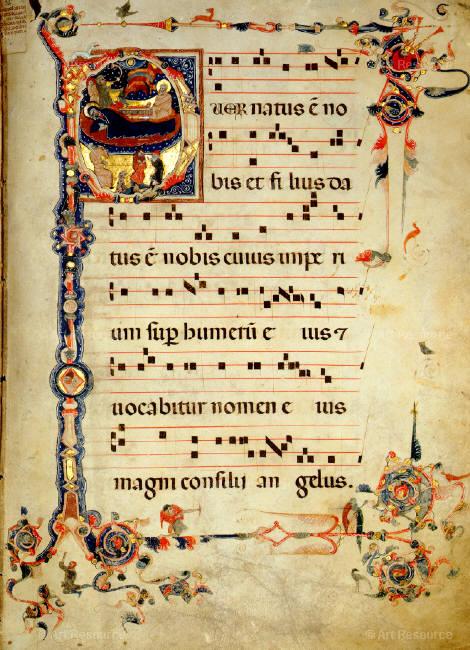 PUER natus ē no
bis et fi lius da
tus ē nobis cuius impe ri
um sup humerū e ius ⁊
uocabitur nomen e ius
magni consilii an gelus.
© Art Resource © Art Resource